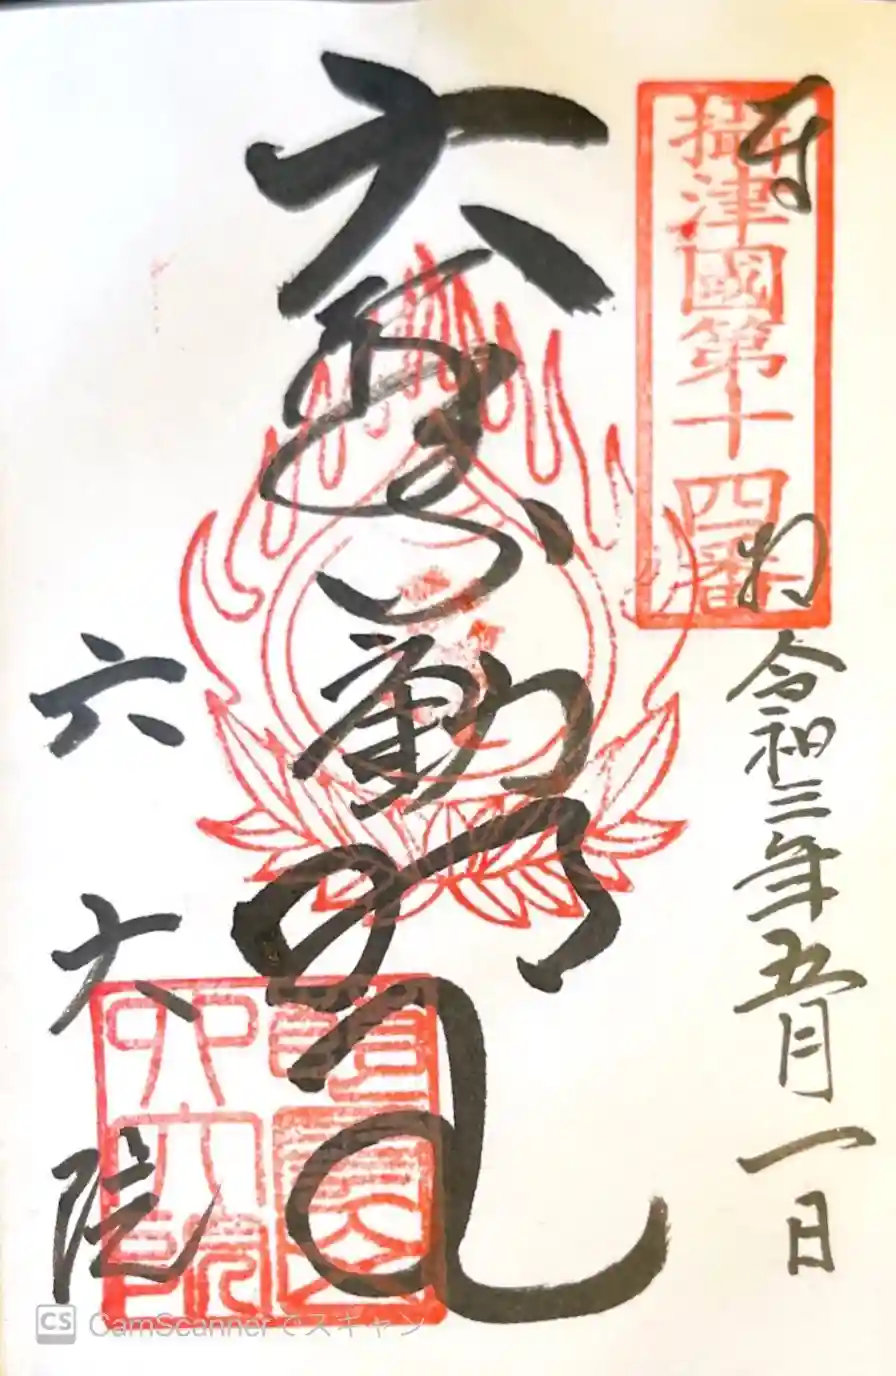 奉拝
攝津國第十四番
令和三年五月一日
大聖不動明王
六大院
六大院
CS CamScannerでスキャン